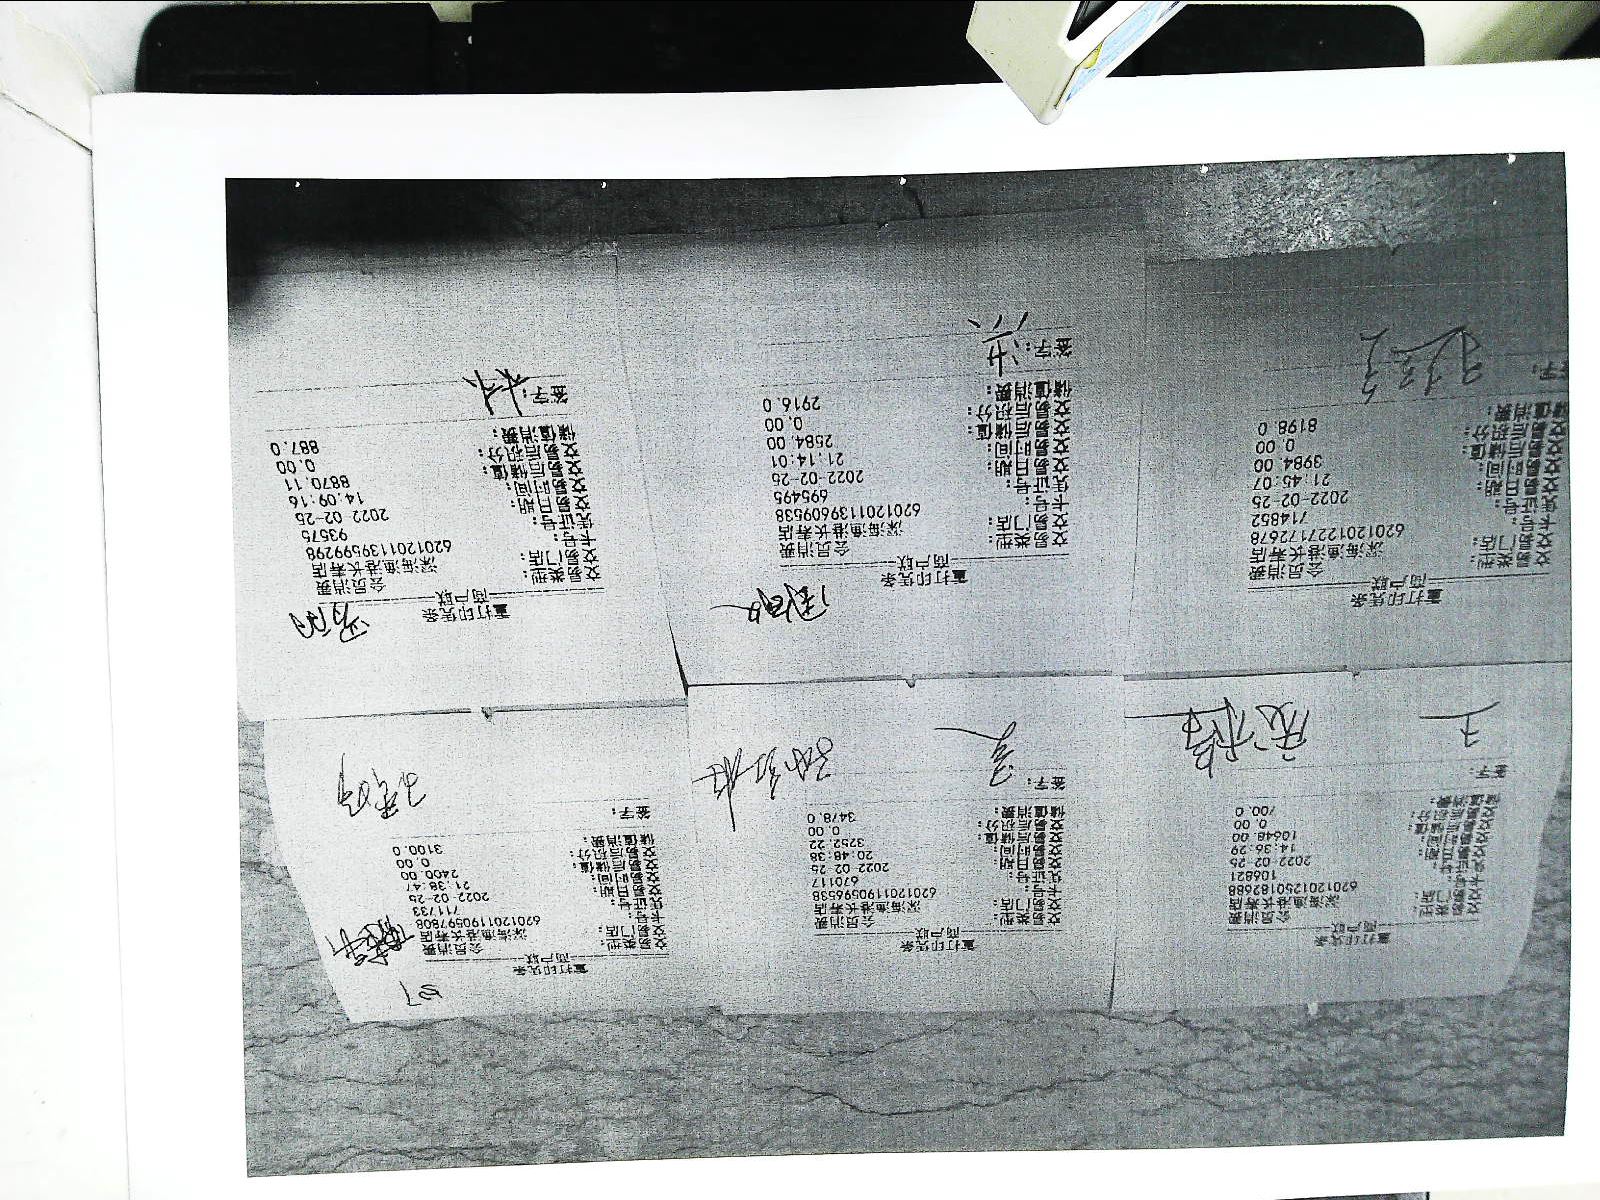 重打印凭条
商户联
交易类型: 会员消费
交易门店: 深海渔港长寿店
卡号: 6201201250182688
凭证号: 106821
交易日期: 2022-02-25
交易时间: 14:36:29
交易后储值: 10648.00
交易后积分: 0.00
储值消费: 700.0
签字: 王
重打印凭条
商户联
交易类型: 会员消费
交易门店: 深海渔港长寿店
卡号: 6201201190596538
凭证号: 670117
交易日期: 2022-02-25
交易时间: 20:48:38
交易后储值: 3252.22
交易后积分: 0.00
储值消费: 3478.0
签字:
重打印凭条
商户联
交易类型: 会员消费
交易门店: 深海渔港长寿店
卡号: 6201201190597808
凭证号: 711733
交易日期: 2022-02-25
交易时间: 21:38:47
交易后储值: 2400.00
交易后积分: 0.00
储值消费: 3100.0
签字:
重打印凭条
商户联
交易类型: 会员消费
交易门店: 深海渔港长寿店
卡号: 6201201227172678
凭证号: 714852
交易日期: 2022-02-25
交易时间: 21:45:07
交易后储值: 3984.00
交易后积分: 0.00
储值消费: 8198.0
签字:
重打印凭条
商户联
交易类型: 会员消费
交易门店: 深海渔港长寿店
卡号: 6201201139609538
凭证号: 695495
交易日期: 2022-02-25
交易时间: 21:14:01
交易后储值: 2584.00
交易后积分: 0.00
储值消费: 2916.0
签字: 洪
重打印凭条
商户联
交易类型: 会员消费
交易门店: 深海渔港长寿店
卡号: 6201201139599298
凭证号: 93575
交易日期: 2022-02-25
交易时间: 14:09:16
交易后储值: 8870.11
交易后积分: 0.00
储值消费: 887.0
签字: 林